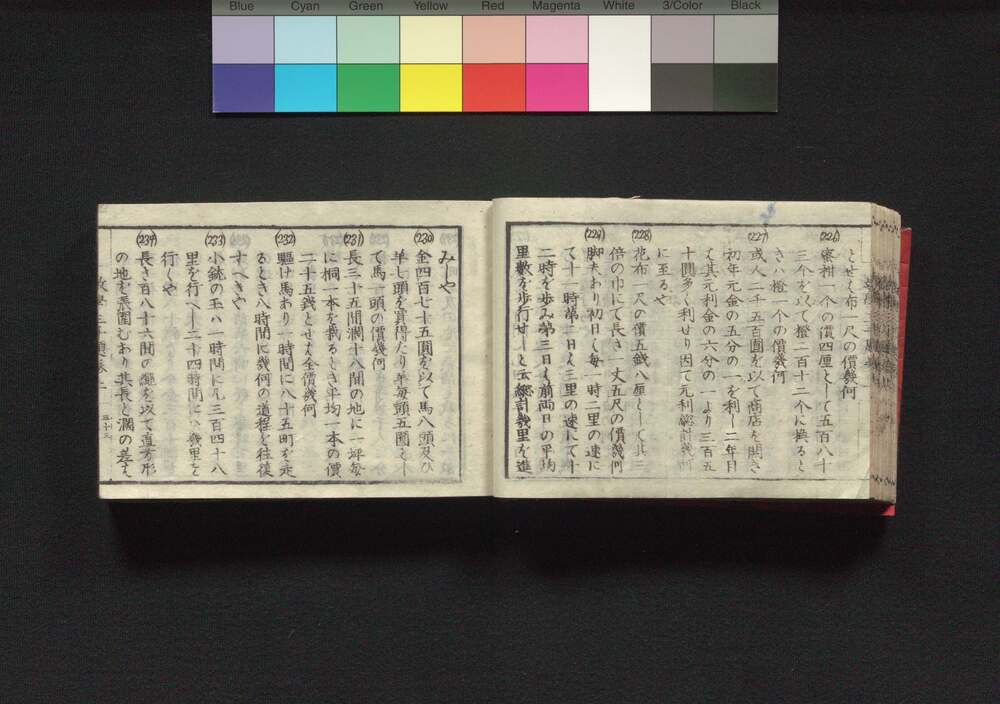 Blue Cyan Green Yellow Red Magenta White 3/Color Black
とせく布一尺の價幾何
(226)
蜜柑一个の價四厘として五百八十
三个を以て橙二百十二个に換ると
きハ橙一个の價幾何
(227)
或人二千五百圓を以て商店を開き
初年元金の五分の一を利し二年目
く其元利金の六分の一より三百五
十圓多く利せり因て元利總計幾何
に至るや
(228)
花布一尺の價五錢八厘として其三
倍の巾にて長さ一丈五尺の價幾何
(229)
脚夫あり初日く每一時二里の速に
て十一時第二日く三里の速にて十
二時を歩み第三日く前兩日の平均
里數を歩行せしと云總計幾里を進
みしや
(230)
金四百七十五圓を以て馬八頭及ひ
羊七頭を買得たり羊每頭五圓とし
て馬一頭の價幾何
(231)
長三十五間濶十八間の地に一坪每
に桐一本を栽るとき平均一本の價
二十五錢とせく全價幾何
(232)
驅け馬あり一時間に八十五町を走
るとき八時間に幾何の道程を往復
すへきや
(233)
小銃の玉ハ一時間にん三百四十八
里を行へし二十四時間にハ幾里を
行くや
(234)
長さ百八十六間の繩を以て直方形
の地を畏圍むあり其長と濶の差く